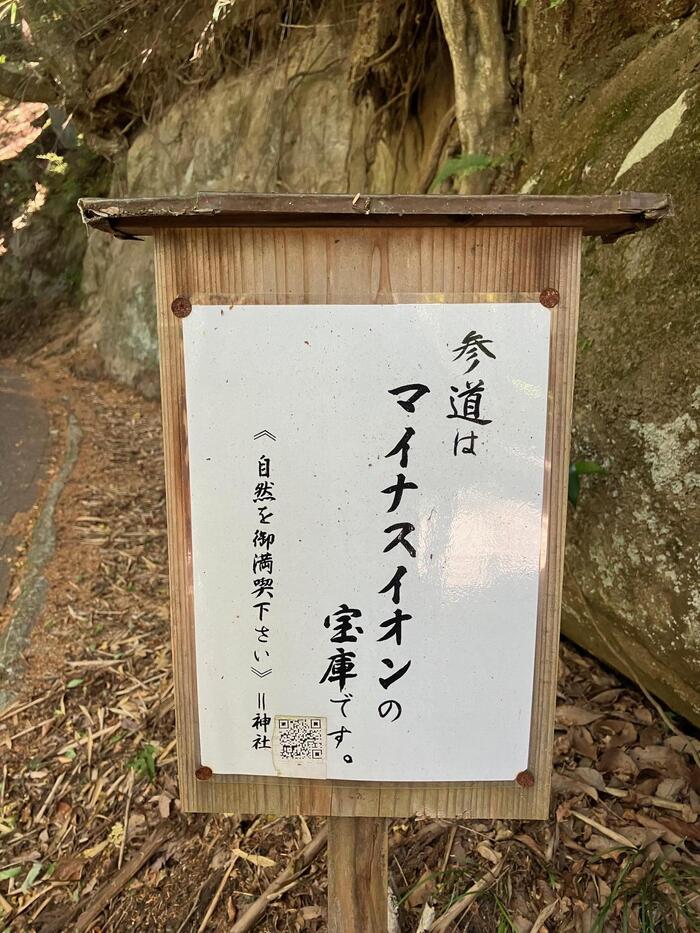 参道は
マイナスイオンの
宝庫です。
《自然を御満喫下さい》=神社